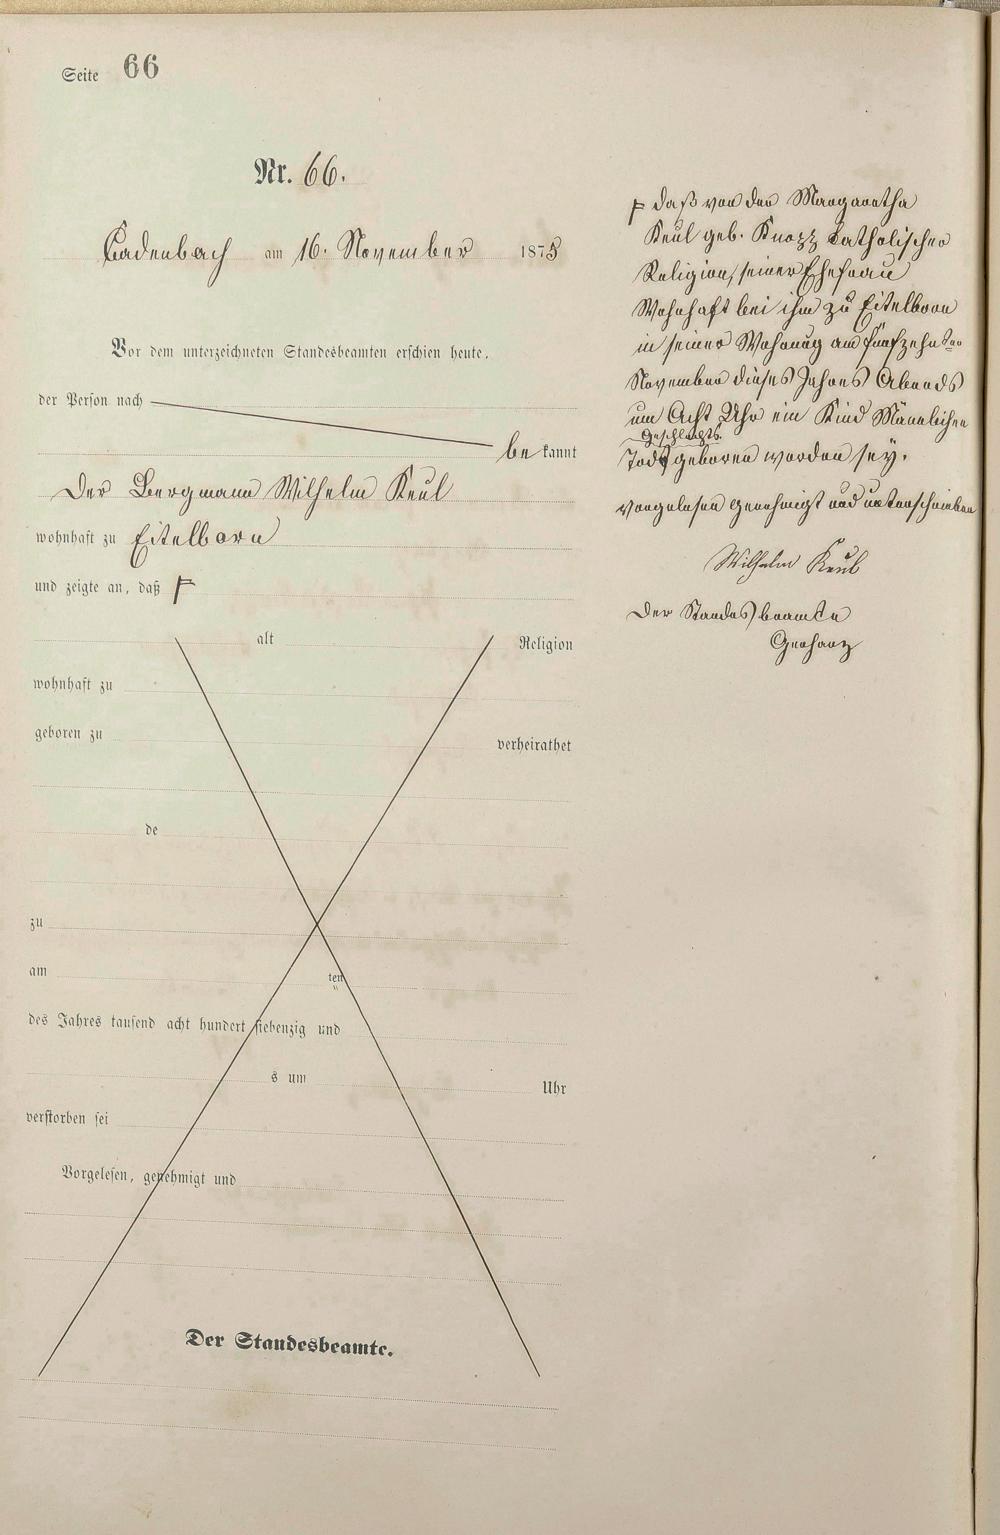 Seite 66
Nr. 66.
Cadenbach am 16. November 1875
Vor dem unterzeichneten Standesbeamten erschien heute,
der Person nach
be kannt
Der Bergmann Wilhelm Keul
wohnhaft zu Eitelborn
und zeigte an, daß ⌐
alt Religion
wohnhaft zu
geboren zu verheirathet
de
zu
am ten
des Jahres tausend acht hundert siebenzig und
s um Uhr
verstorben sei
Vorgelesen, genehmigt und
Der Standesbeamte.
⌐ daß von der Margaretha
Keul geb. Knopp Catholischer
Religion, seiner Ehefrau
Wohnhaft bei ihm zu Eitelborn
in seiner Wohnung am fünfzehnten
November dieses Jahres Abends
um Acht Uhr ein Kind Männlichen
Geschlechts
Todt geboren worden sey.
vorgelesen genehmigt und unterschrieben
Wilhelm Keul
Der Standesbeamte
Gerharz